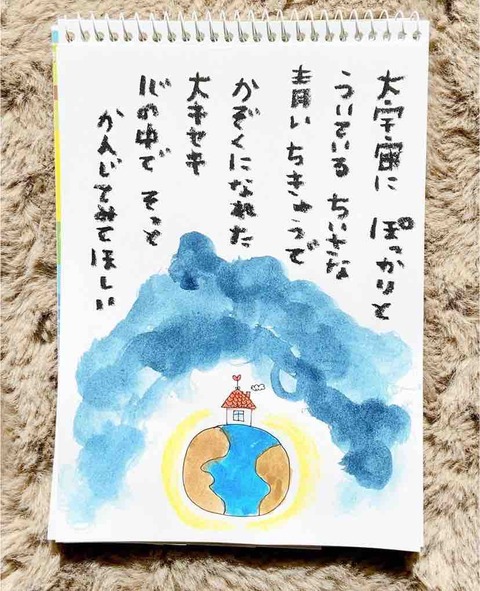 大宇宙に ぽっかりと
ういている ちいさな
青い ちきゅうで
かぞくになれた
大キセキ
心の中で そっと
かんじてみてほしい